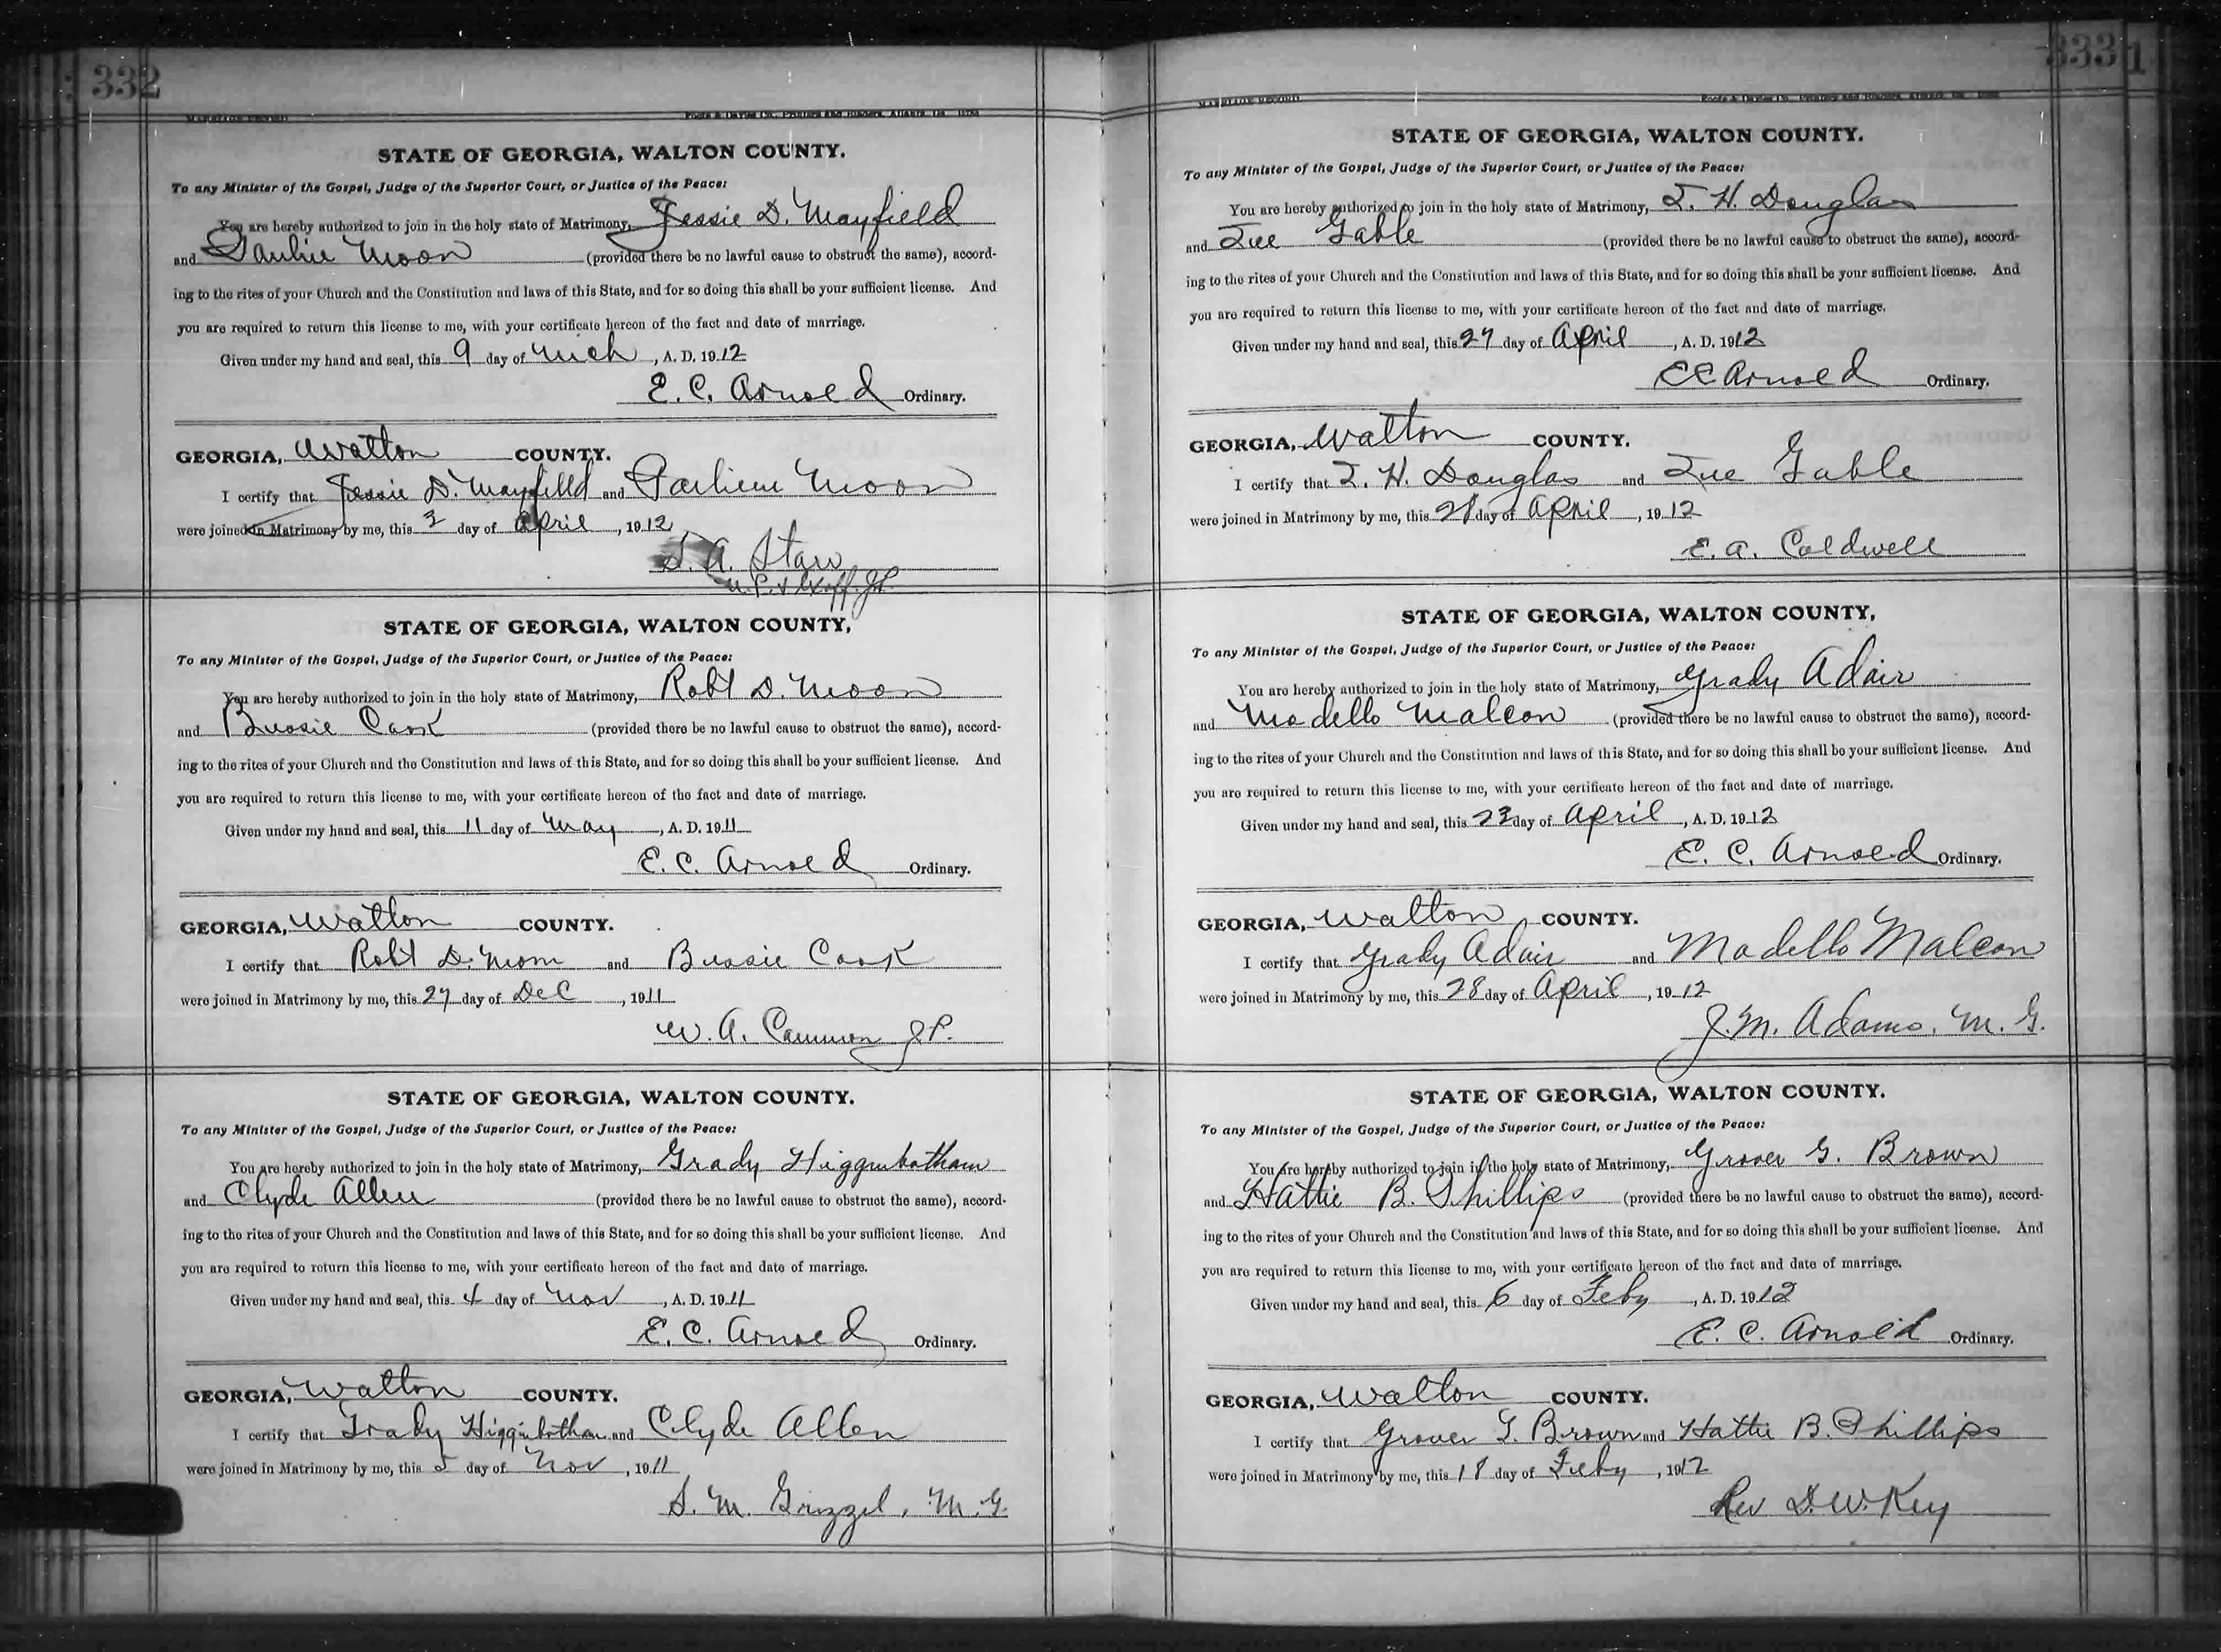 332
MARRIAGE RECORD
Foote & Davies Co., Printers and Binders, Atlanta, Ga.
STATE OF GEORGIA, WALTON COUNTY.
To any Minister of the Gospel, Judge of the Superior Court, or Justice of the Peace:
You are hereby authorized to join in the holy state of Matrimony, Jessie D. Mayfield
and Moon (provided there be no lawful cause to obstruct the same), accord-
ing to the rites of your Church and the Constitution and laws of this State, and for so doing this shall be your sufficient license. And
you are required to return this license to me, with your certificate hereon of the fact and date of marriage.
Given under my hand and seal, this 9 day of Mch, A. D. 1912
E. C. Arnold Ordinary.
GEORGIA, Walton COUNTY.
I certify that Jessie D. Mayfield and Moon
were joined in Matrimony by me, this 3 day of April, 1912
S. A. Starr
N.P. & Ex off. J.P.
STATE OF GEORGIA, WALTON COUNTY,
To any Minister of the Gospel, Judge of the Superior Court, or Justice of the Peace:
You are hereby authorized to join in the holy state of Matrimony, Robt D. Moon
and Bussie Cook (provided there be no lawful cause to obstruct the same), accord-
ing to the rites of your Church and the Constitution and laws of this State, and for so doing this shall be your sufficient license. And
you are required to return this license to me, with your certificate hereon of the fact and date of marriage.
Given under my hand and seal, this 11 day of May, A. D. 1911
E. C. Arnold Ordinary.
GEORGIA, Walton COUNTY.
I certify that Robt D. Moon and Bussie Cook
were joined in Matrimony by me, this 27 day of Dec, 1911
W. A. Cammon J.P.
STATE OF GEORGIA, WALTON COUNTY.
To any Minister of the Gospel, Judge of the Superior Court, or Justice of the Peace:
You are hereby authorized to join in the holy state of Matrimony, Grady Higginbotham
and Clyde Allen (provided there be no lawful cause to obstruct the same), accord-
ing to the rites of your Church and the Constitution and laws of this State, and for so doing this shall be your sufficient license. And
you are required to return this license to me, with your certificate hereon of the fact and date of marriage.
Given under my hand and seal, this 4 day of Nov, A. D. 1911
E. C. Arnold Ordinary.
GEORGIA, Walton COUNTY.
I certify that Grady Higginbotham and Clyde Allen
were joined in Matrimony by me, this 5 day of Nov, 1911
S. M. Grizzel, M.G.
333
MARRIAGE RECORD
Foote & Davies Co., Printers and Binders, Atlanta, Ga.
STATE OF GEORGIA, WALTON COUNTY.
To any Minister of the Gospel, Judge of the Superior Court, or Justice of the Peace:
You are hereby authorized to join in the holy state of Matrimony, T. H. Douglas
and Zue Gable (provided there be no lawful cause to obstruct the same), accord-
ing to the rites of your Church and the Constitution and laws of this State, and for so doing this shall be your sufficient license. And
you are required to return this license to me, with your certificate hereon of the fact and date of marriage.
Given under my hand and seal, this 27 day of April, A. D. 1912
E C Arnold Ordinary.
GEORGIA, Walton COUNTY.
I certify that T. H. Douglas and Zue Gable
were joined in Matrimony by me, this 28 day of April, 1912
E. A. Caldwell
STATE OF GEORGIA, WALTON COUNTY,
To any Minister of the Gospel, Judge of the Superior Court, or Justice of the Peace:
You are hereby authorized to join in the holy state of Matrimony, Grady Adair
and Modello Malcon (provided there be no lawful cause to obstruct the same), accord-
ing to the rites of your Church and the Constitution and laws of this State, and for so doing this shall be your sufficient license. And
you are required to return this license to me, with your certificate hereon of the fact and date of marriage.
Given under my hand and seal, this 23 day of April, A. D. 1912
E. C. Arnold Ordinary.
GEORGIA, Walton COUNTY.
I certify that Grady Adair and Modello Malcon
were joined in Matrimony by me, this 28 day of April, 1912
J. M. Adams. M. G.
STATE OF GEORGIA, WALTON COUNTY.
To any Minister of the Gospel, Judge of the Superior Court, or Justice of the Peace:
You are hereby authorized to join in the holy state of Matrimony, Grover G. Brown
and Hattie B. Phillips (provided there be no lawful cause to obstruct the same), accord-
ing to the rites of your Church and the Constitution and laws of this State, and for so doing this shall be your sufficient license. And
you are required to return this license to me, with your certificate hereon of the fact and date of marriage.
Given under my hand and seal, this 6 day of Feby, A. D. 1912
E. C. Arnold Ordinary.
GEORGIA, Walton COUNTY.
I certify that Grover G. Brown and Hattie B. Phillips
were joined in Matrimony by me, this 18 day of Feby, 1912
Rev D. W. Key